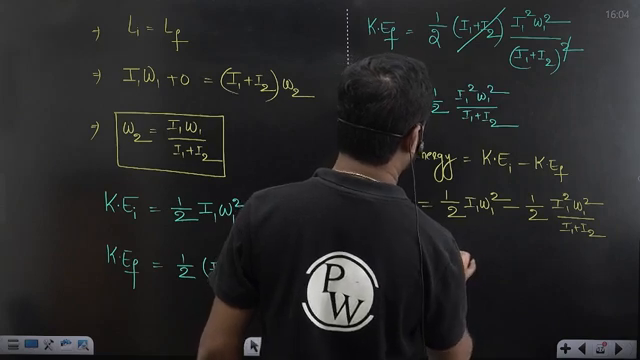 ⇒ L₁ = L_f
⇒ I₁ω₁ + 0 = (I₁+I₂) ω₂
⇒ ω₂ = I₁ω₁ / (I₁+I₂)
K·E_i = 1/2 I₁ω₁²
K·E_f = 1/2 (I
16:04
K·E_f = 1/2 (I₁+I₂) I₁²ω₁² / (I₁+I₂)²
1/2 I₁²ω₁² / (I₁+I₂)
= K·E_i − K·E_f
= 1/2 I₁ω₁² − 1/2 I₁²ω₁² / (I₁+I₂)
P
W